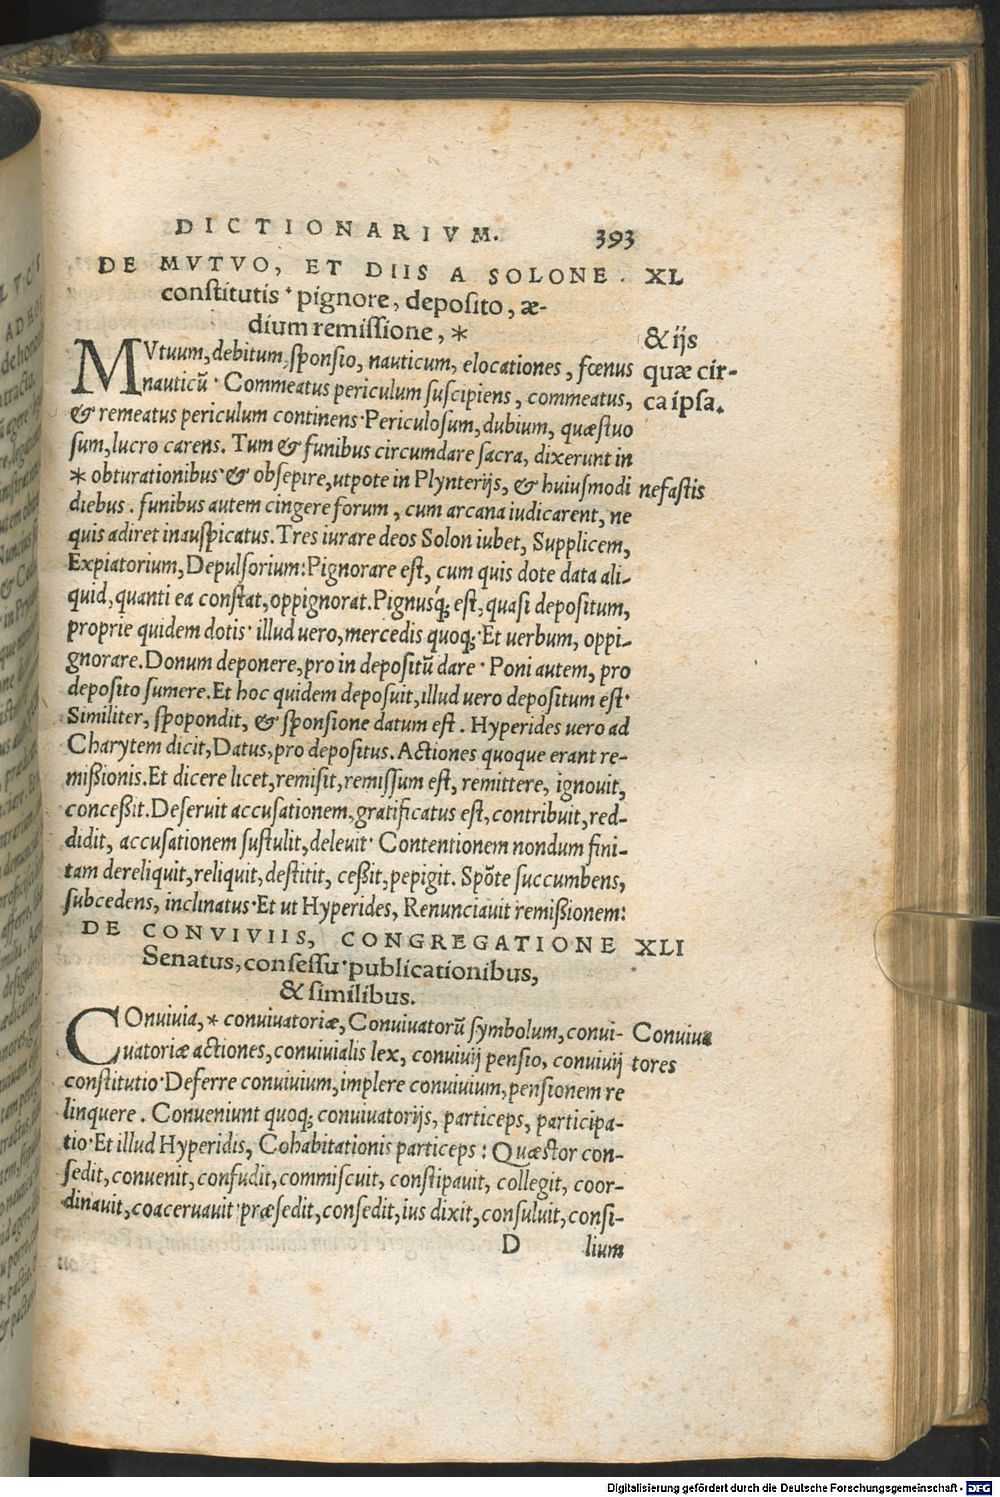 DICTIONARIVM. 393
DE MVTVO, ET DIIS A SOLONE . XL
constitutis ' pignore, deposito, æ-
dium remissione, *
& ijs
quæ cir-
ca ipsa.
MVtuum, debitum, sponsio, nauticum, elocationes, fœnus
nauticũ · Commeatus periculum suscipiens, commeatus,
& remeatus periculum continens · Periculosum, dubium, quæstuo
sum, lucro carens. Tum & funibus circumdare sacra, dixerunt in
* obturationibus · & obsepire, utpote in Plynterijs, & huiusmodi nefastis
diebus . funibus autem cingere forum, cum arcana iudicarent, ne
quis adiret inauspicatus. Tres iurare deos Solon iubet, Supplicem,
Expiatorium, Depulsorium: Pignorare est, cum quis dote data ali-
quid, quanti ea constat, oppignorat. Pignusq́; est, quasi depositum,
proprie quidem dotis · illud uero, mercedis quoq; · Et uerbum, oppi-
gnorare. Donum deponere, pro in depositũ dare · Poni autem, pro
deposito sumere. Et hoc quidem deposuit, illud uero depositum est ·
Similiter, spopondit, & sponsione datum est . Hyperides uero ad
Charytem dicit, Datus, pro depositus. Actiones quoque erant re-
mißionis. Et dicere licet, remisit, remissum est, remittere, ignouit,
conceßit. Deseruit accusationem, gratificatus est, contribuit, red-
didit, accusationem sustulit, deleuit · Contentionem nondum fini-
tam dereliquit, reliquit, destitit, ceßit, pepigit. Spõte succumbens,
subcedens, inclinatus · Et ut Hyperides, Renunciauit remißionem:
DE CONVIVIIS, CONGREGATIONE XLI
Senatus, consessu · publicationibus,
& similibus.
COnuiuia, * conuiuatoriæ, Conuiuatorũ symbolum, conui- Conuiua
uatoriæ actiones, conuiuialis lex, conuiuij pensio, conuiuij tores
constitutio · Deferre conuiuium, implere conuiuium, pensionem re
linquere . Conueniunt quoq; conuiuatorijs, particeps, participa-
tio · Et illud Hyperidis, Cohabitationis particeps : Quæstor con-
sedit, conuenit, confudit, commiscuit, constipauit, collegit, coor-
dinauit, coaceruauit · præsedit, consedit, ius dixit, consuluit, consi-
D lium
Digitalisierung gefördert durch die Deutsche Forschungsgemeinschaft - DFG